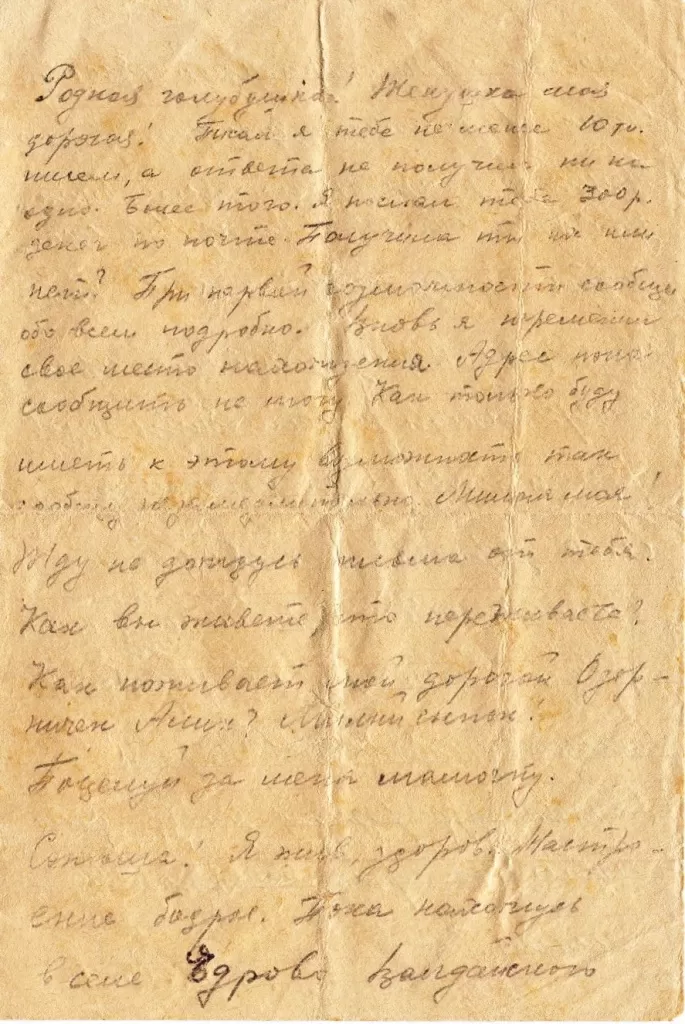 Родная голубушка! Женушка моя
дорогая! Писал я тебе не менее 10 ти
писем, а ответа не получил ни на
одно. Более того. Я послал тебе 300 р.
денег по почте. Получила ты их или
нет? При первой возможности сообщи
обо всем подробно. Вновь я переменил
свое место нахождения. Адрес пока
сообщить не могу. Как только буду
иметь к этому возможность так
сообщу незамедлительно. Милая моя!
Жду не дождусь письма от тебя.
Как вы живете, что переживаете?
Как поживает мой дорогой Озор-
ничек Алик? Милый сынок!
Поцелуй за меня мамочку.
Я жив, здоров. Настро-
ение бодрое. Пока нахожусь
в селе Едрово Валдайского